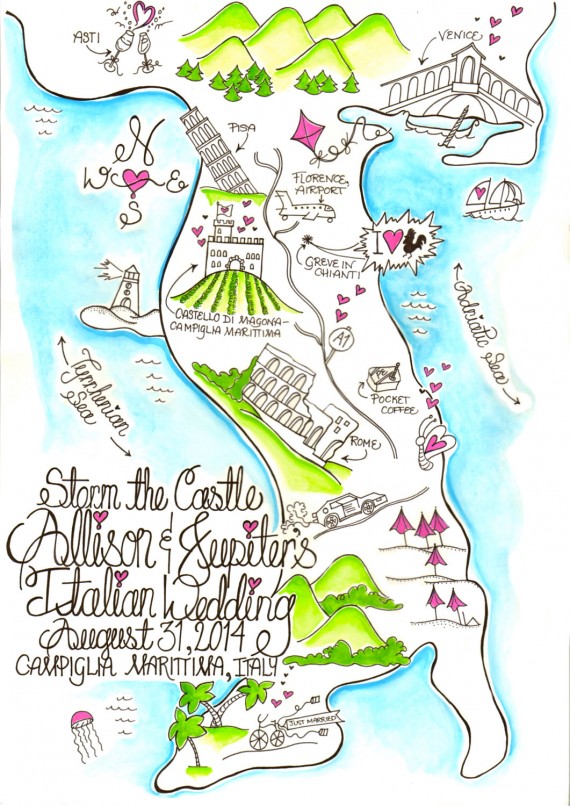 ASTI
VENICE
PISA
N
W E
S
FLORENCE,
AIRPORT
I
GREVE IN
CHIANTI
CASTELLO DI MAGONA-
CAMPIGLIA MARITTIMA
A1
Adriatic Sea
Tyrrhenian
Sea
POCKET
COFFEE
ROME
Storm the Castle
Allison & Jeupiter's
Italian Wedding
August 31, 2014
CAMPIGLIA MARITTIMA, ITALY
JUST MARRIED